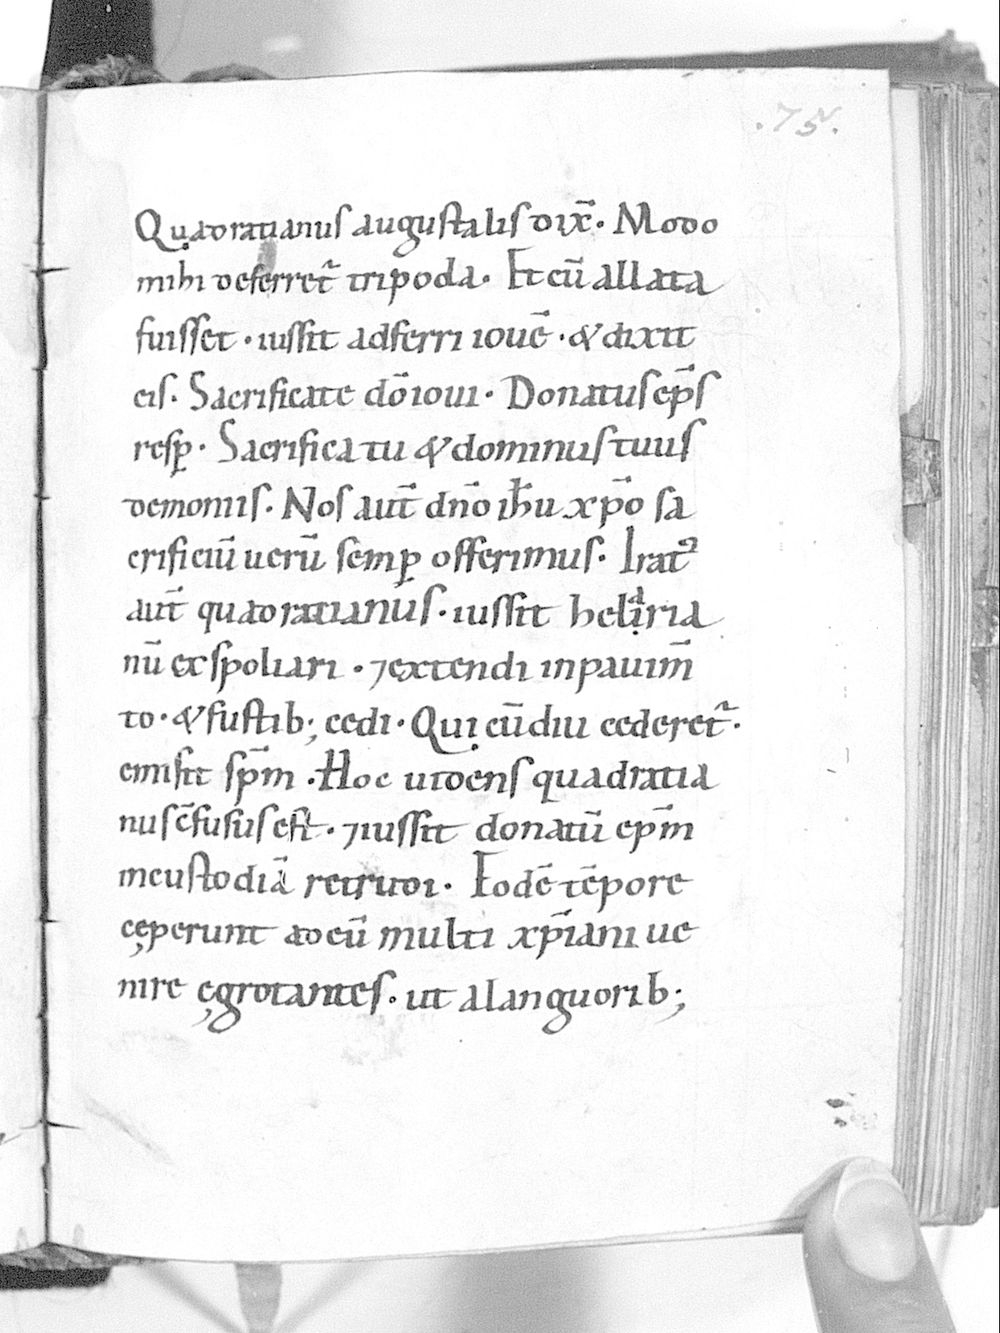 .75.
Quadratianus augustalis dix̄. Modo
mihi deferret᷑ tripoda. Et cū allata
fuisset. iussit adferri iouē. & dixit
eis. Sacrificate dō ioui. Donatus ep̄s
resp̱. Sacrifica tu & dominus tuus
demoniis. Nos aut̄ dn̄o ih̄u xp̄o sa
crificiū uerū semꝑ offerimus. Irat᷒
aut̄ quadratianus. iussit helaria
nū exspoliari. ⁊ extendi in pauim̄
to. & fustib; cedi. Qui cū diu cederet᷑.
emisit sp̄m. Hoc uidens quadratia
nus c̄fusus est. ⁊ iussit donatū ep̄m
in custodiā retrudi. Eodē tēpore
cęperunt ad eū multi xp̄iani ue
nire ęgrotantes. ut a languorib;